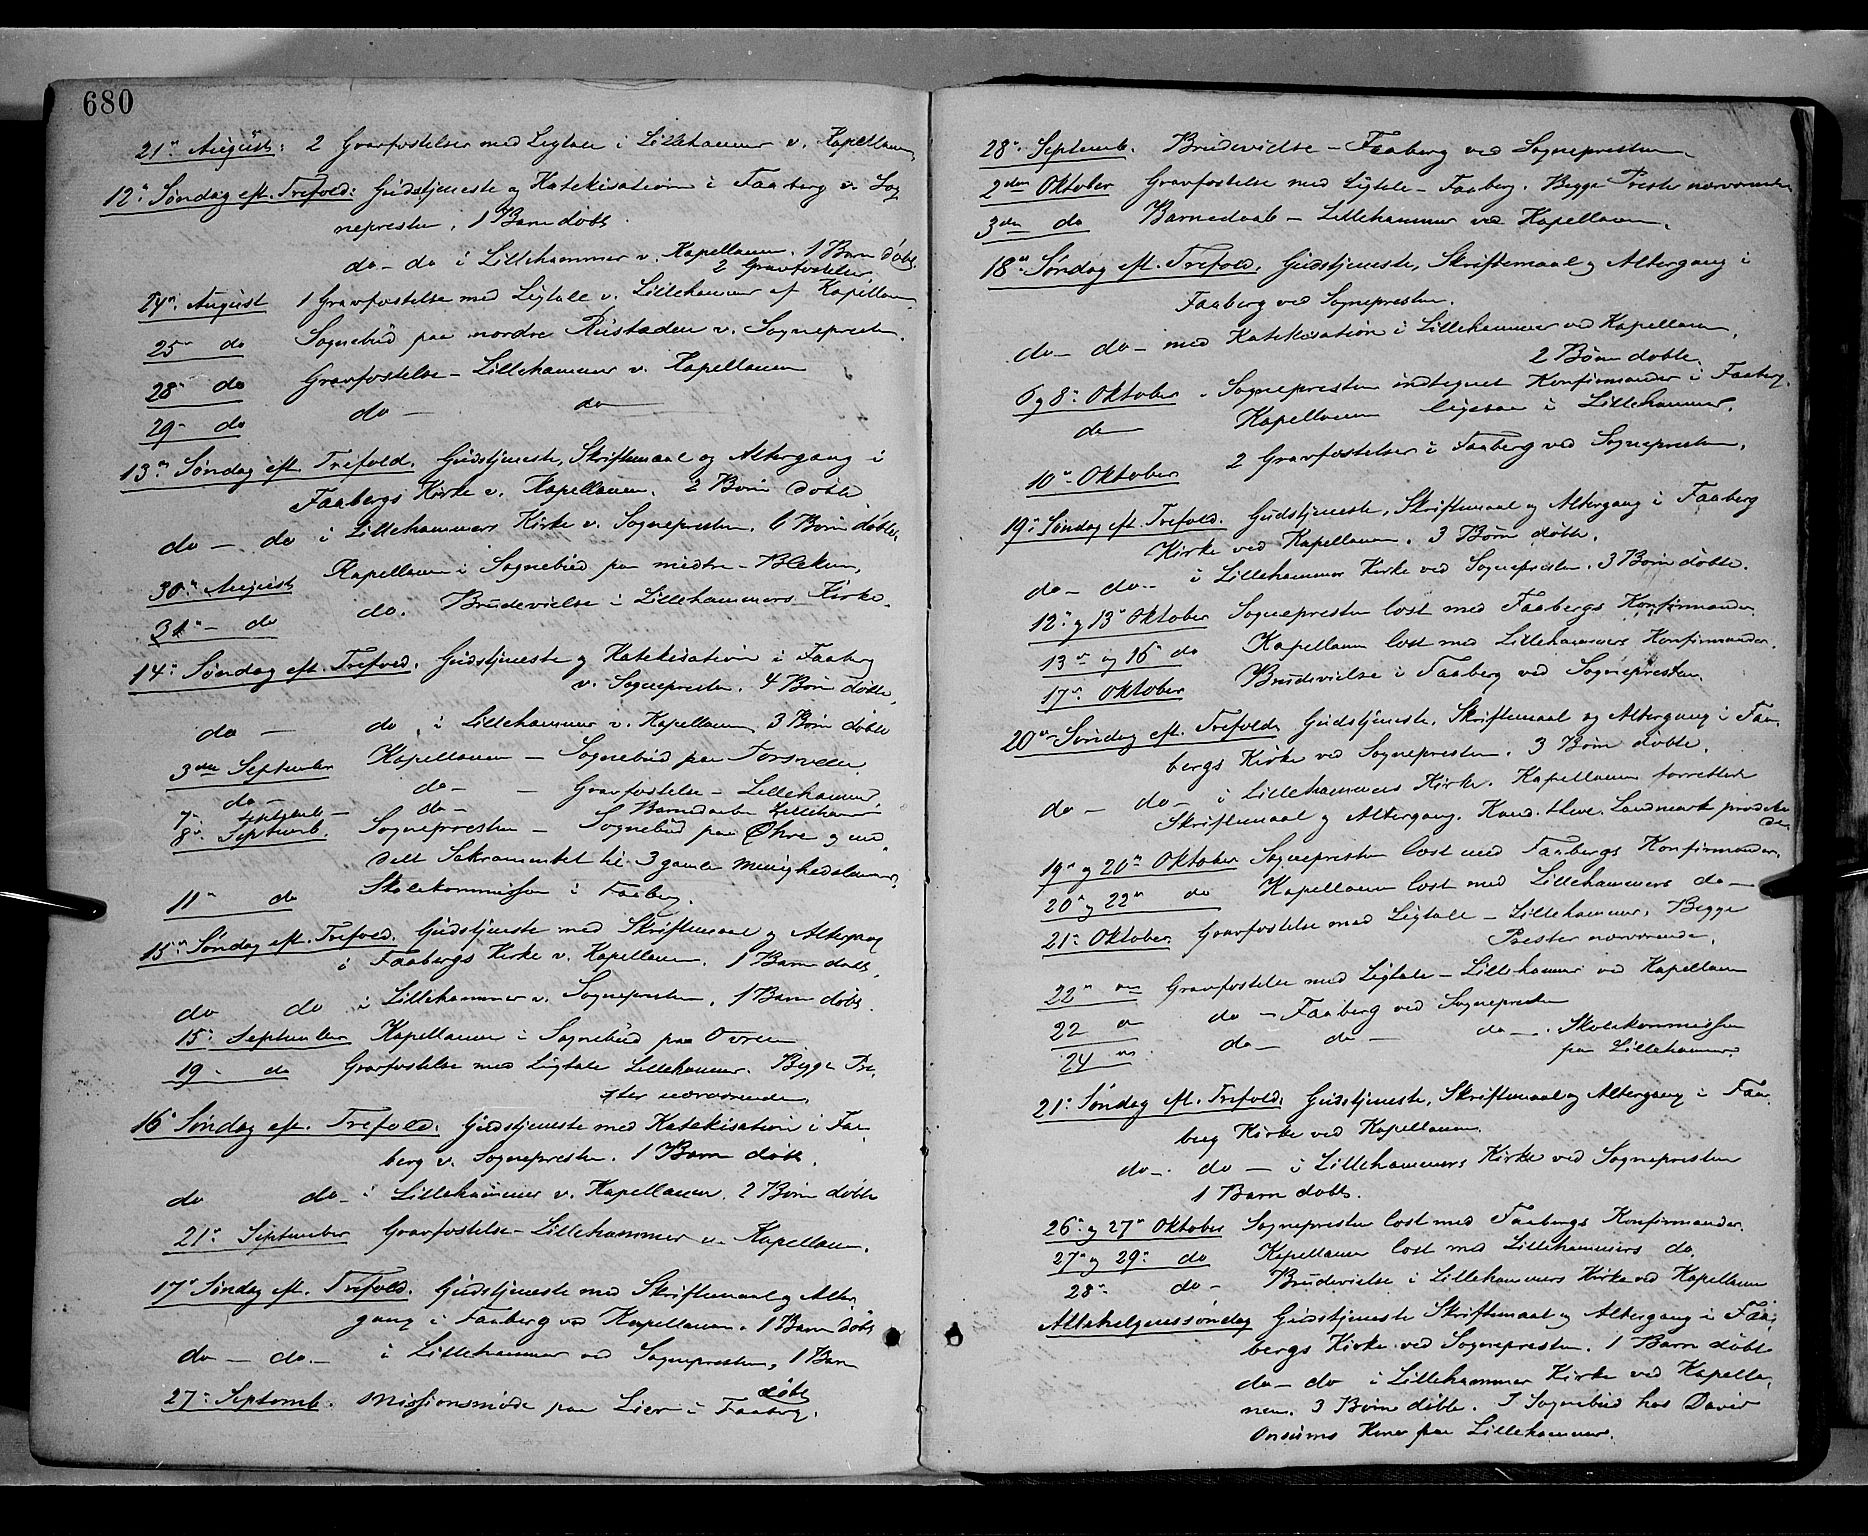 680
21de August: 2 Gravfæstelser med Ligtale i Lillehammer v. Kapellanen
12te Søndag eft. Trefold: Gudstjeneste og Katekisation i Faaberg v. Sog
nepresten, 1 Barn døbt.
do – do i Lillehammer v. Kapellanen. 1 Barn døbt.
2 Gravfæstelser
24de August 1 Gravfæstelse med Ligtale v. Lillehammer af Kapellanen
25de do Sognebud paa nordre Rustaden v. Sognepresten.
28de do Gravfæstelse – Lillehammer v. Kapellanen
29de do do – do
13de Søndag eft. Trefold. Gudstjeneste, Skriftemaal og Altergang i
Faabergs Kirke v. Kapellanen. 2 Børn døbte
do – do i Lillehammers Kirke v. Sognepresten. 6 Børn døbte.
30de August Kapellanen i Sognebud paa medtre – Bleken.
31de – do do. Brudevielse i Lillehammers Kirke.
14de Søndag eft. Trefold. Gudstjeneste og Katekisation i Faaberg
v. Sognepresten. 4 Børn døbte.
do – do i Lillehammer v. Kapellanen 3 Børn døbte
3die September Kapellanen – Sognebud paa
do – do – – Gravfæstelse – Lillehammer.
7de Septemb – do – Barnedaab Lillehammer
8de Septemb. Sognepresten – Sognebud paa Øhre og med
delt Sakramentet til 3 gamle Menighedslemmer.
11te do Skolekommission i Faaberg.
15de Søndag eft. Trefold. Gudstjeneste med Skriftemaal og Altergang
i Faabergs Kirke v. Kapellanen. 1 Barn døbt.
do do i Lillehammer v. Sognepresten. 1 Barn døbt.
15de September Kapellanen i Sognebud paa Ovren
19 – do Gravfæstelse med Ligtale Lillehammer. Begge Pre
ster nærværende.
16de Søndag eft. Trefold. Gudstjeneste med Katekisation i Faa
berg v. Sognepresten. 1 Barn døbt.
do do – i Lillehammer v. Kapellanen. 2 Børn døbte
21de September Gravfæstelse – Lillehammer v. Kapellanen.
17de Søndag eft. Trefold. Gudstjeneste med Skriftemaal og Alter
gang i Faaberg ved Kapellanen. 1 Barn døbt
do – do – i Lillehammer ved Sognepresten, 1 Barn
døbt
27de Septemb. Missionsmøde paa Lier i Faaberg.
28de Septemb. Brudevidse – Faaberg ved Sognepresten
2den Oktober Gravfæstelse med Ligtale – Faaberg. Begge Prester nærværende
3die do Barnedaab – Lillehammer ved Kapellanen.
18de Søndag eft. Trefold. Gudstjeneste, Skriftemaal og Altergang i
Faaberg ved Sognepresten.
do – do – med Katekisation i Lillehammer ved Kapellanen,
2 Børn døbte
6 og 8de Oktober. Sognepresten indtegnet Konfirmander i Faaberg.
do Kapellanen ligesaa i Lillehammer.
10de Oktober 2 Gravfæstelser i Faaberg ved Sognepresten.
19de Søndag eft. Trefold. Gudstjeneste, Skriftemaal og Altergang i Faaberg
Kirke ved Kapellanen. 3 Børn døbte.
do – do – i Lillehammer Kirke ved Sognepresten. 3 Børn døbte.
12te og 13de Oktober Sognepresten læst med Faabergs Konfirmander
13de og 15 do Kapellanen læst med Lillehammers Konfirmander.
17de Oktober Brudevielse i Faaberg ved Sognepresten.
20de Søndag eft. Trefold. Gudstjeneste, Skriftemaal og Altergang i Faa
bergs Kirke ved Sognepresten. 3 Børn døbte.
do – do – i Lillehammers Kirke. Kapellanen forrettede
Skriftemaal og Altergang. Kand. theol. Landmark prædike
de.
19de og 20de Oktober Sognepresten læst med Faabergs Konfirmander.
20de og 22de do Kapellanen læst med Lillehammers do –
21de Oktober. Gravfæstelse med Ligtale – Lillehammer. Begge
Prester nærværende.
22de Gravfæstelse med Ligtale – Lillehammer ved Kapellanen
22 do – Faaberg ved Sognepresten
24 do – do – do – . Skolekommission
paa Lillehammer.
21de Søndag eft. Trefold. Gudstjeneste, Skriftemaal og Altergang i Faa
berg Kirke ved Kapellanen.
do – do – i Lillehammers Kirke ved Sognepresten
1 Barn døbt.
26de og 27de Oktober Sognepresten læst med Faabergs Konfirmander.
27de og 29de do Kapellanen læst med Lillehammers do.
28de do – Brudevielse i Lillehammers Kirke ved Kapellanen
Allehelgenssøndag Gudstjeneste Skriftemaal og Altergang i Faa
bergs Kirke ved Sognepresten. 1 Barn døbt
do – do i Lillehammer Kirke ved Kapella
nen. 3 Børn døbte. I Sognebud hos David
Onsums Kone paa Lillehammer.